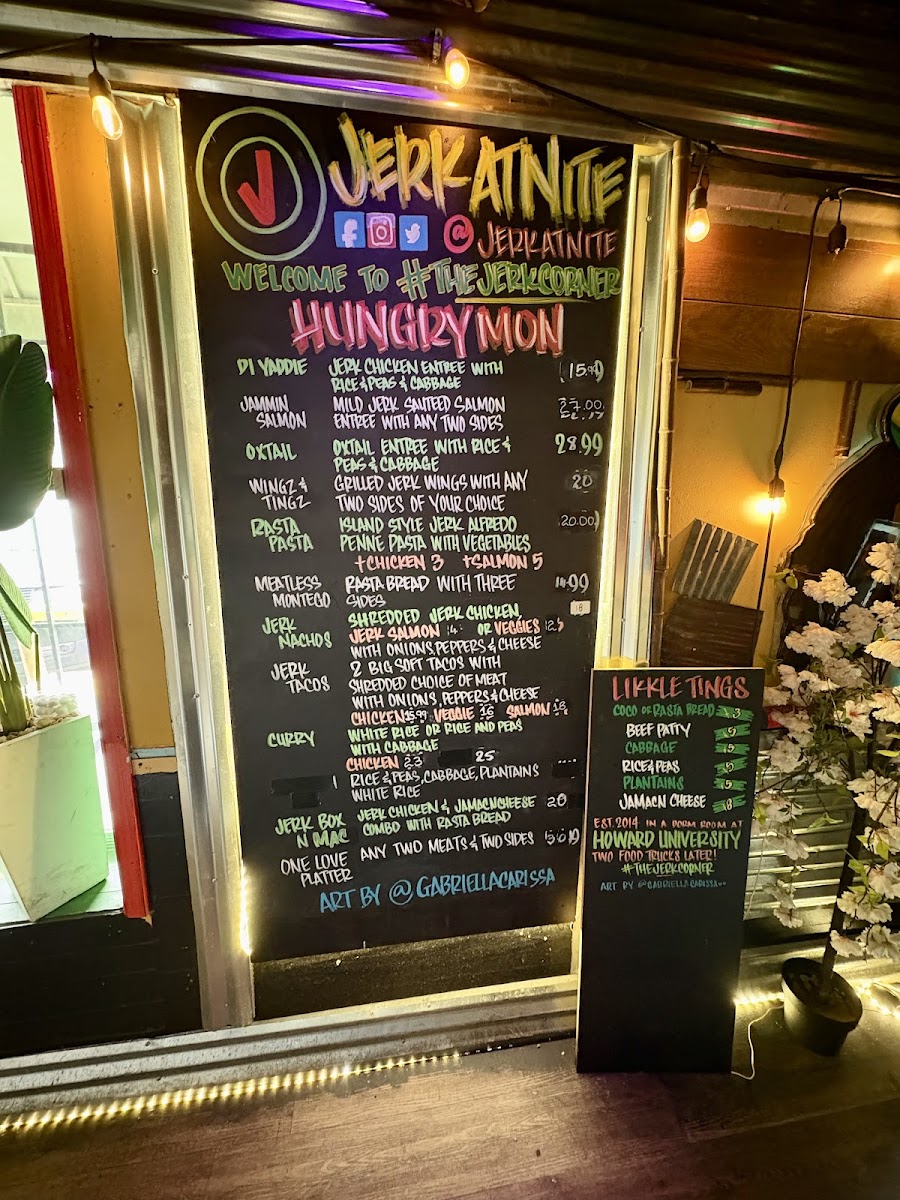 JERK AT NITE
@JERKATNITE
WELCOME TO #THEJERKCORNER
HUNGRY MON
DI YADDIE JERK CHICKEN ENTREE WITH
RICE & PEAS & CABBAGE
JAMMIN MILD JERK SAUTEED SALMON 27.00
SALMON ENTREE WITH ANY TWO SIDES
OXTAIL OXTAIL ENTREE WITH RICE & 28.99
PEAS & CABBAGE
WINGZ & GRILLED JERK WINGS WITH ANY 20
TINGZ TWO SIDES OF YOUR CHOICE
RASTA ISLAND STYLE JERK ALFREDO 20.00
PASTA PENNE PASTA WITH VEGETABLES
+CHICKEN 3 +SALMON 5
MEATLESS RASTA BREAD WITH THREE
MONTEGO SIDES
JERK SHREDDED JERK CHICKEN, 18
NACHOS JERK SALMON OR VEGGIES
WITH ONIONS, PEPPERS & CHEESE
JERK 2 BIG SOFT TACOS WITH
TACOS SHREDDED CHOICE OF MEAT
WITH ONIONS, PEPPERS & CHEESE
CHICKEN VEGGIE 16 SALMON 18
CURRY WHITE RICE OR RICE AND PEAS
WITH CABBAGE
CHICKEN 23 25
RICE & PEAS, CABBAGE, PLANTAINS
WHITE RICE
JERK BOX JERK CHICKEN & JAMACNCHEESE 20
N MAC COMBO WITH RASTA BREAD
ONE LOVE ANY TWO MEATS & TWO SIDES
PLATTER
ART BY @GABRIELLACARISSA
LIKKLE TINGS
COCO OR RASTA BREAD 3
BEEF PATTY 5
CABBAGE 5
RICE & PEAS 5
PLANTAINS 5
JAMACN CHEESE 8
EST. 2014 IN A DORM ROOM AT
HOWARD UNIVERSITY
TWO FOOD TRUCKS LATER!
#THEJERKCORNER
ART BY @GABRIELLACARISSA